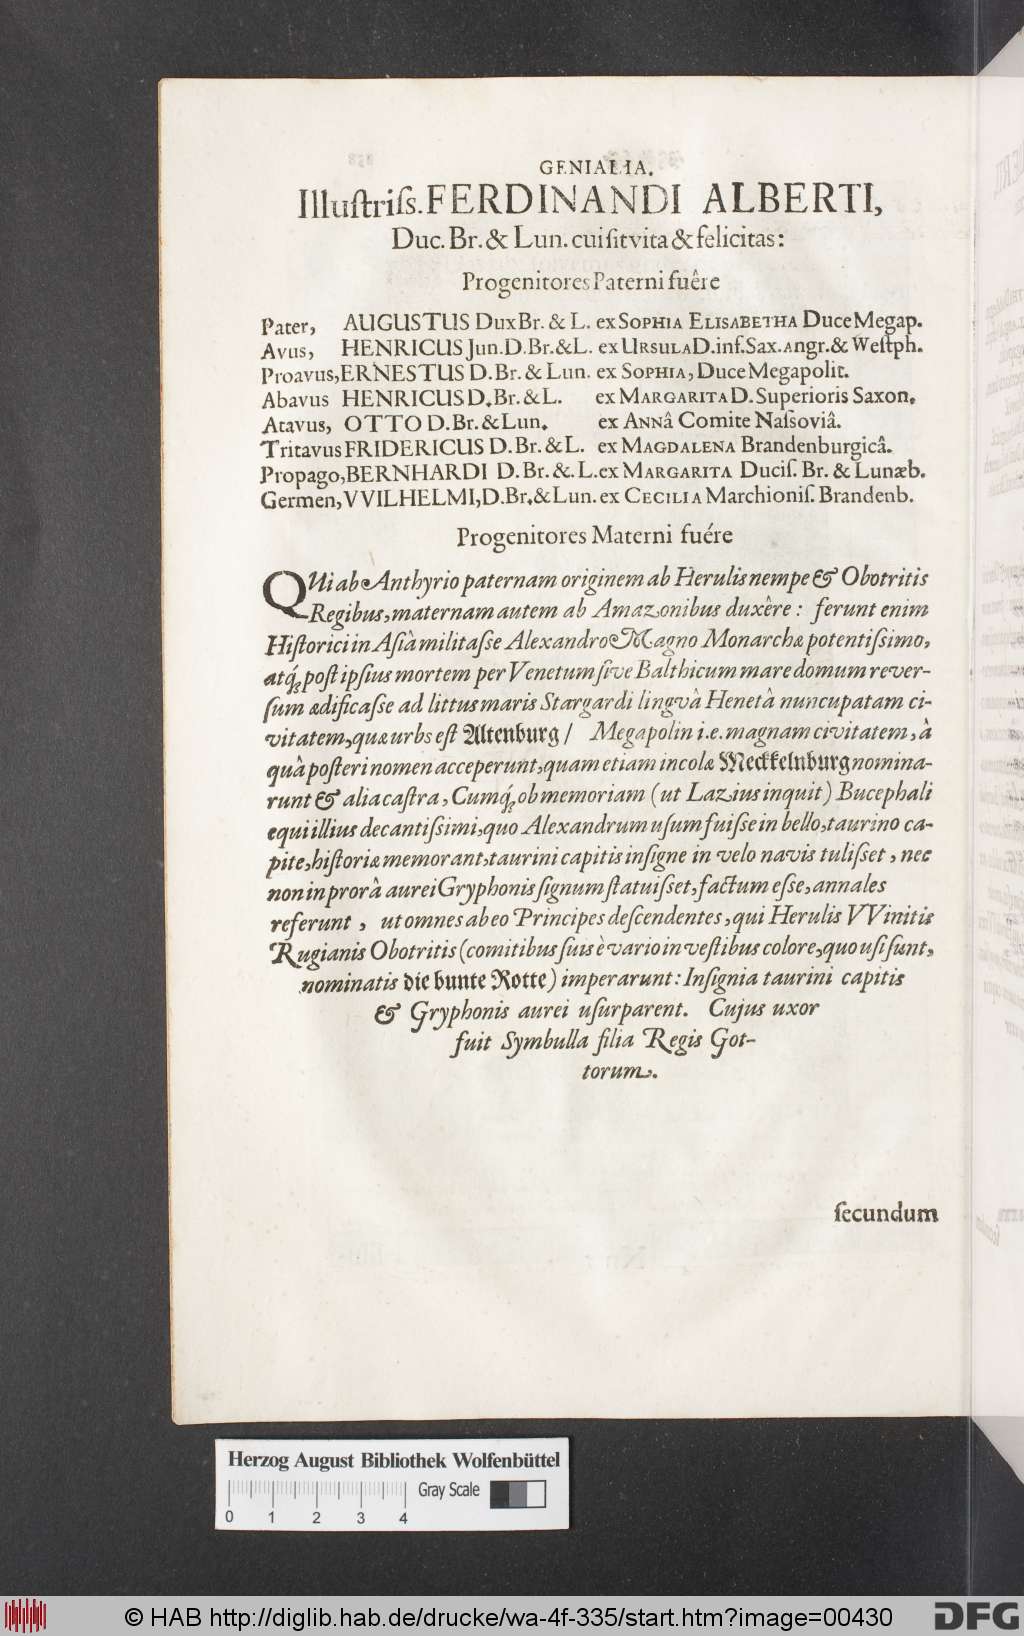 GENIALIA.
Illuſtriſs. FERDINANDI ALBERTI,
Duc. Br. & Lun. cui ſit vita & felicitas:
Progenitores Paterni fuêre
Pater, AUGUSTUS Dux Br. & L. ex SOPHIA ELISABETHA Duce Megap.
Avus, HENRICUS Jun. D. Br. & L. ex URSULA D. inf. Sax. Angr. & Weſtph.
Proavus, ERNESTUS D. Br. & Lun. ex SOPHIA, Duce Megapolit.
Abavus HENRICUS D. Br. & L. ex MARGARITA D. Superioris Saxon.
Atavus, OTTO D. Br. & Lun. ex ANNâ Comite Naſsoviâ.
Tritavus FRIDERICUS D. Br. & L. ex MAGDALENA Brandenburgicâ.
Propago, BERNHARDI D. Br. & L. ex MARGARITA Duciſ. Br. & Lunæb.
Germen, VVILHELMI, D. Br. & Lun. ex CECILIA Marchioniſ. Brandenb.
Progenitores Materni fuére
QUi ab Anthyrio paternam originem ab Herulis nempe & Obotritis
Regibus, maternam autem ab Amazonibus duxêre: ferunt enim
Hiſtorici in Aſiâ militaſse Alexandro Magno Monarchæ potentiſsimo,
atq́; poſt ipſius mortem per Venetum ſive Balthicum mare domum rever-
ſum ædificaſse ad littus maris Stargardi lingvâ Henetâ nuncupatam ci-
vitatem, quæ urbs eſt Altenburg / Megapolin i.e. magnam civitatem, à
quâ poſteri nomen acceperunt, quam etiam incolæ Meckelnburg nomina-
runt & alia caſtra, Cumq́; ob memoriam (ut Lazius inquit) Bucephali
equi illius decantiſsimi, quo Alexandrum uſum fuiſse in bello, taurino ca-
pite, hiſtoriæ memorant, taurini capitis inſigne in velo navis tuliſset, nec
non in prorâ aurei Gryphonis ſignum ſtatuiſset, factum eſse, annales
referunt, ut omnes ab eo Principes deſcendentes, qui Herulis VVinitis
Rugianis Obotritis (comitibus ſuis è vario in veſtibus colore, quo uſi ſunt,
nominatis die bunte Rotte) imperarunt: Inſignia taurini capitis
& Gryphonis aurei uſurparent. Cujus uxor
fuit Symbulla filia Regis Got-
torum.
ſecundum
Herzog August Bibliothek Wolfenbüttel
Gray Scale
0 1 2 3 4
© HAB http://diglib.hab.de/drucke/wa-4f-335/start.htm?image=00430
DFG